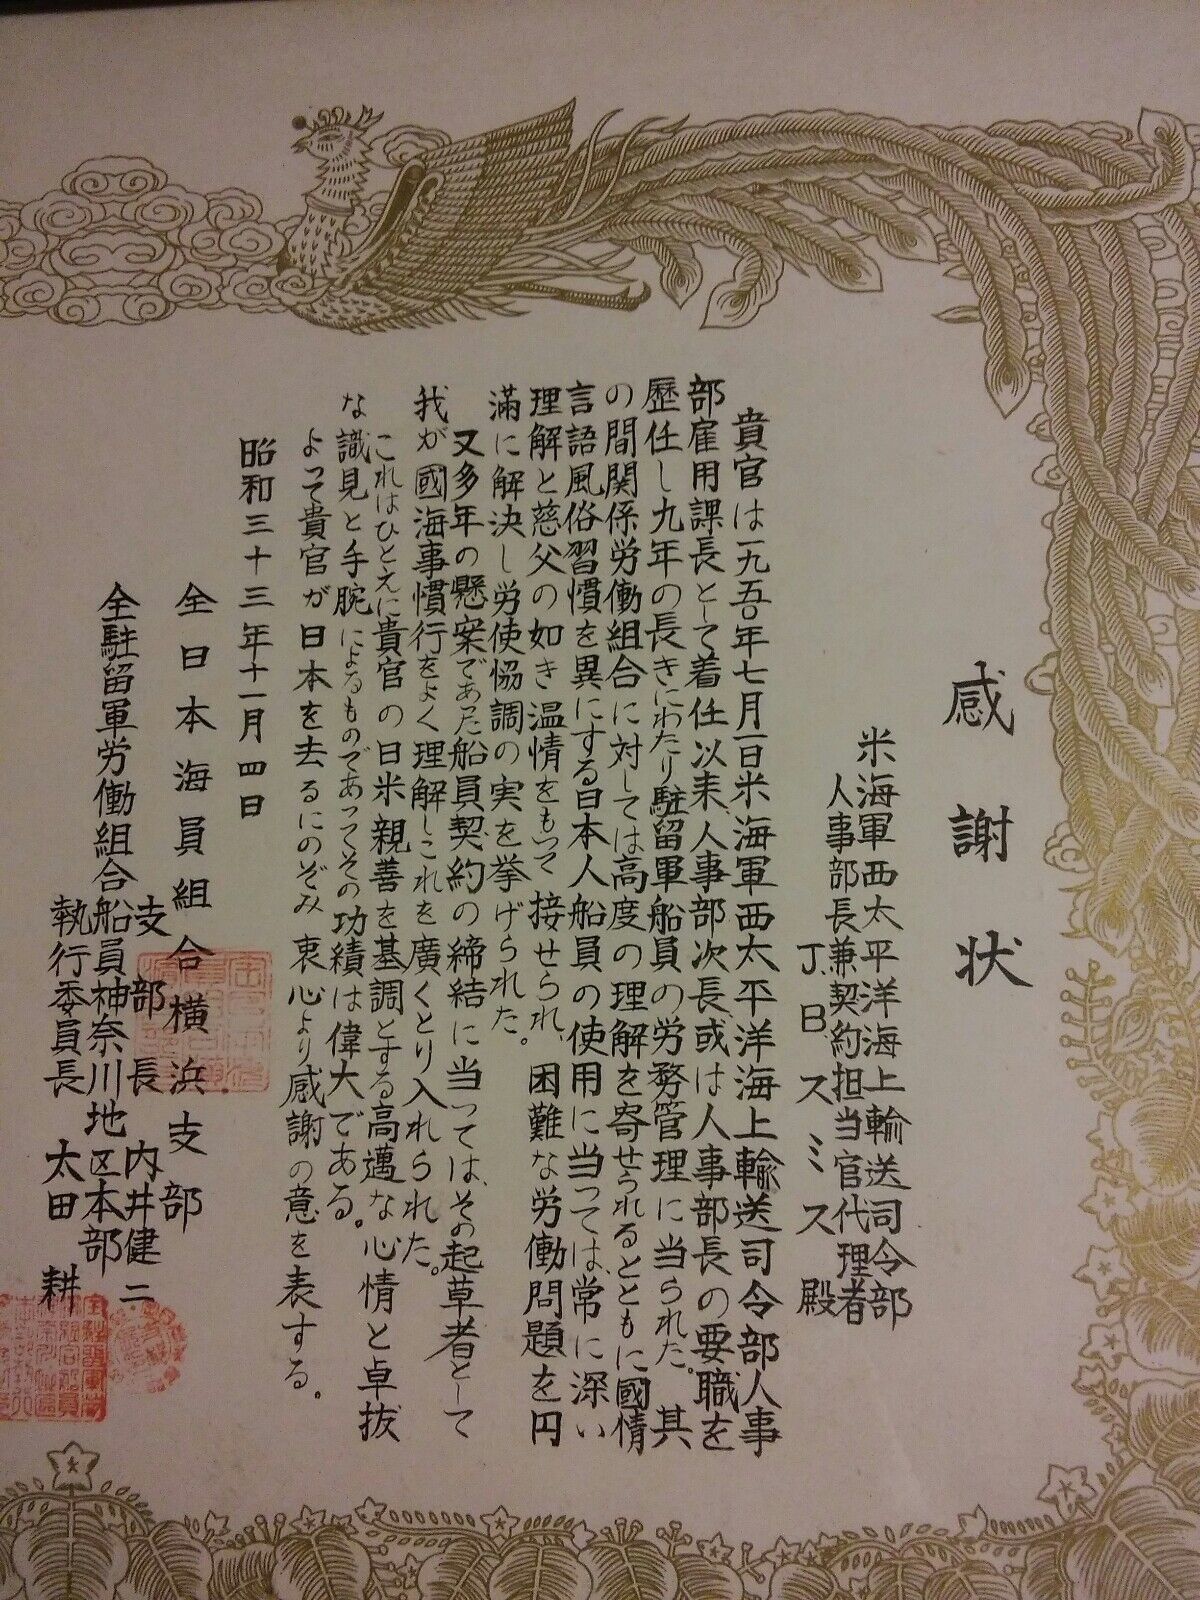 感謝状
米海軍西太平洋海上輸送司令部
人事部長兼契約担当官代理者
J.B.スミス殿
貴官は一九五〇年七月一日米海軍西太平洋海上輸送司令部人事
部雇用課長として着任以来、人事部次長或は人事部長の要職を
歴任し九年の長きにわたり駐留軍船員の労務管理に当られた。其
の間関係労働組合に対しては高度の理解を寄せられるとともに國情
言語風俗習慣を異にする日本人船員の使用に当っては、常に深い
理解と慈父の如き温情をもって接せられ、困難な労働問題を円
滿に解決し労使協調の実を挙げられた。
又多年の懸案であった船員契約の締結に当っては、その起草者として
我が國海事慣行をよく理解しこれを廣くとり入れられた。
これはひとえに貴官の日米親善を基調とする高邁な心情と卓抜
な識見と手腕によるものであってその功績は偉大である。
よって貴官が日本を去るにのぞみ衷心より感謝の意を表する。
昭和三十三年十一月四日
全日本海員組合横浜支部
支部長 内井健二
全駐留軍労働組合船員神奈川地区本部
執行委員長 太田耕